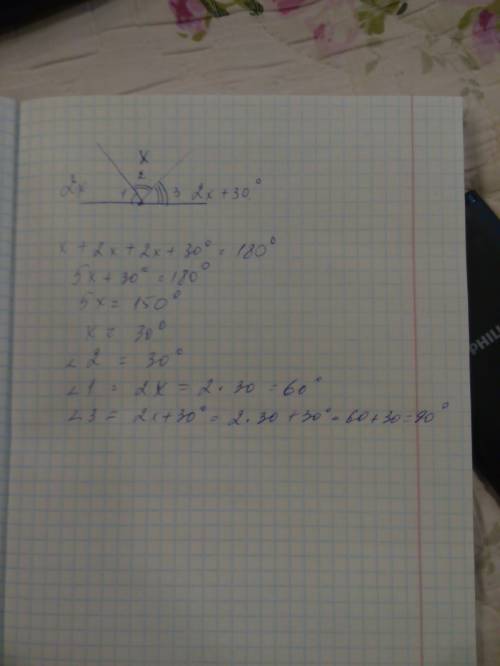 x
2
2x 1 3 2x+30°
x + 2x + 2x + 30° = 180°
5x + 30° = 180°
5x = 150°
x = 30°
∠2 = 30°
∠1 = 2x = 2·30 = 60°
∠3 = 2x+30° = 2·30+30° = 60+30=90°
PHILI